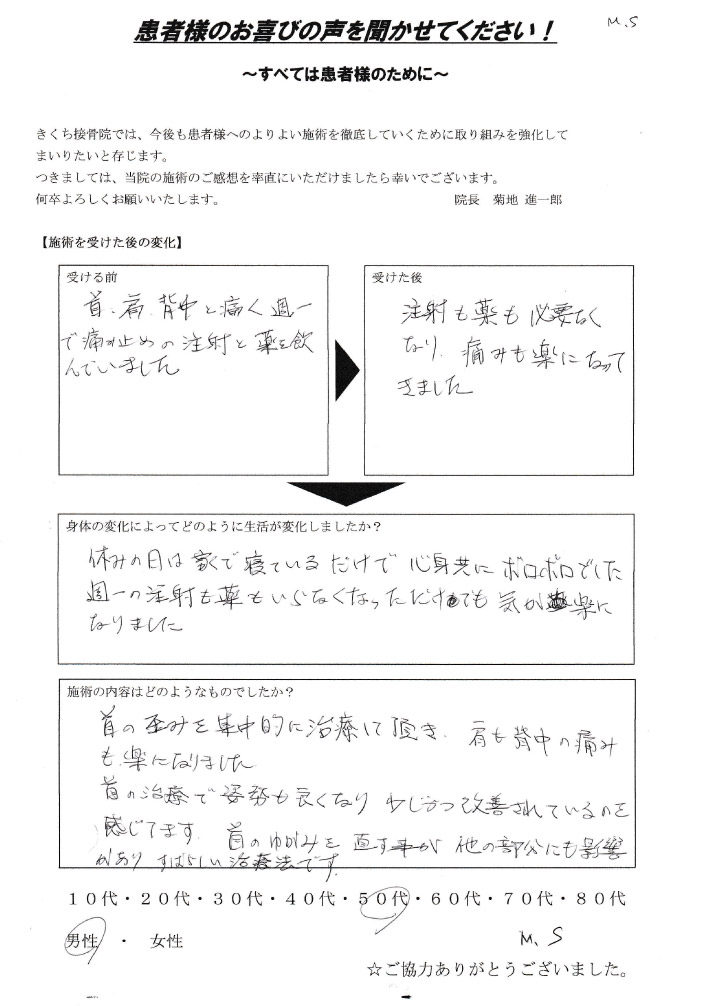 M.S
患者様のお喜びの声を聞かせてください！
～すべては患者様のために～
きくち接骨院では、今後も患者様へのよりよい施術を徹底していくために取り組みを強化して
まいりたいと存じます。
つきましては、当院の施術のご感想を率直にいただけましたら幸いでございます。
何卒よろしくお願いいたします。
院長　菊地 進一郎
【施術を受けた後の変化】
受ける前
首、肩、背中と痛く週一
で痛み止めの注射と薬を飲
んでいました
受けた後
注射も薬も必要なく
なり、痛みも楽になって
きました
身体の変化によってどのように生活が変化しましたか？
休みの日は家で寝ているだけで心身共にボロボロでした
週一の注射も薬もいらなくなっただけでも気が楽に
なりました
施術の内容はどのようなものでしたか？
首の歪みを集中的に治療して頂き、肩も背中の痛み
も楽になりました
首の治療で姿勢も良くなり少しづつ改善されているのを
感じてます、首のゆがみを直す事が他の部分にも影響
があり すばらしい治療法です。
１０代・２０代・３０代・４０代・５０代・６０代・７０代・８０代
男性　・　女性
M、S
☆ご協力ありがとうございました。